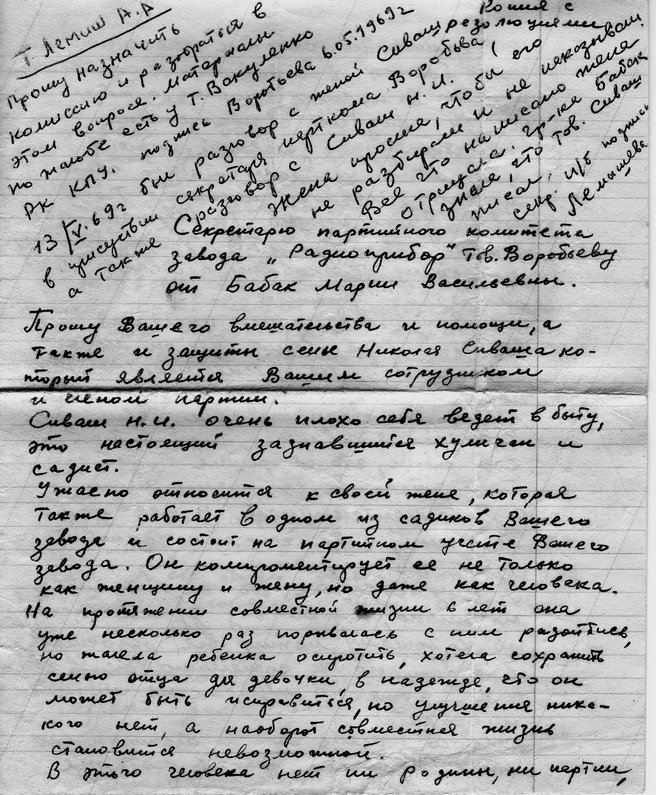 Копия с
резолюциями
Т. Лемиш А.А
Прошу назначить
комиссию и разобраться в
этом вопросе. Материалы
по жалобе есть у т. Вакуленко
РК КПУ. подпись Воробьева 6.05.1969г
13/V.69г был разговор с женой Сиваш
в присутствии секретаря парткома Воробьева,
а также разговор с Сиваш Н.И.
Жена просила, чтобы его
не разбирали и не наказывали.
Все что написано жена
отрицала. гр-ке Бабак
знаю, что тов. Сиваш
писал,
секр. п/б подпись
Лемишева
Секретарю партийного комитета
завода „Радиоприбор" тов. Воробьеву
от Бабак Марии Васильевны.
Прошу Вашего вмешательства и помощи, а
также и защиты семьи Николая Сиваша ко-
торый является Вашим сотрудником
и членом партии.
Сиваш Н.И. очень плохо себя ведет в быту,
это настоящий зазнавшийся хулиган и
садист.
Ужасно относится к своей жене, которая
также работает в одном из садиков Вашего
завода и состоит на партийном учете Вашего
завода. Он компроментирует ее не только
как женщину и жену, но даже как человека.
На протяжении совместной жизни 6 лет она
уже несколько раз порывалась с ним разойтись,
но жалела ребенка осиротить, хотела сохранить
семью отца для девочки, в надежде, что он
может быть исправиться, но улучшения ника-
кого нет, а наоборот совместная жизнь
становится невозможной.
В этого человека нет ни родины, ни партии,